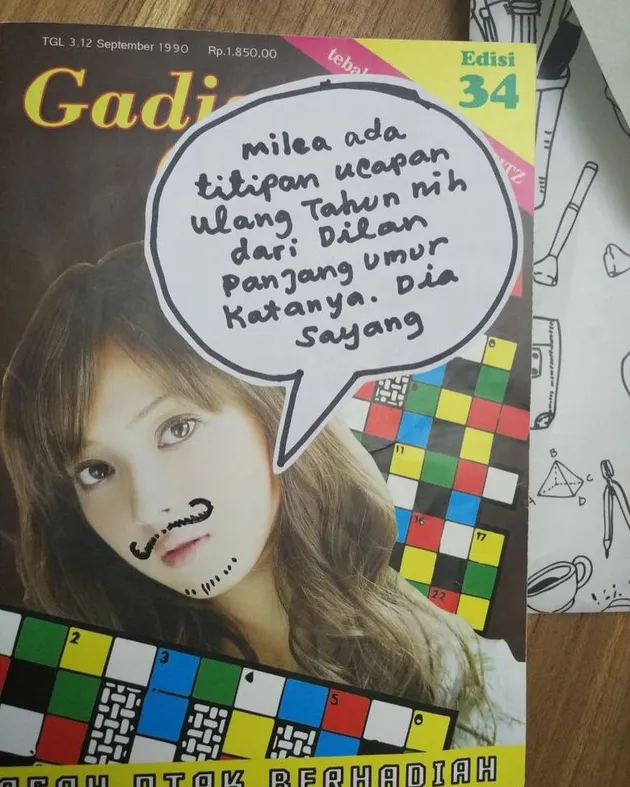 TGL 3.12 September 1990 Rp.1.850,00
Edisi
34
tebal
milea ada
titipan ucapan
ulang Tahun nih
dari Dilan
panjang umur
katanya. Dia
sayang
6
11
16
17
22
2
3
4
5
6
B
C
A
D
ASAH OTAK BERHADIAH